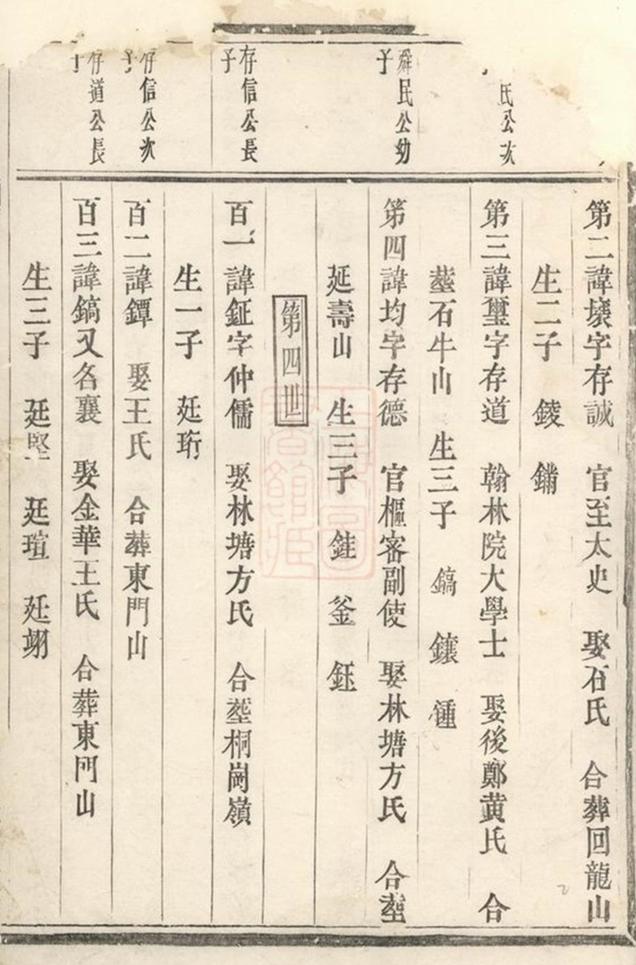 氏公次
第二諱㙷字存誠 官至太史 娶石氏 合葬回龍山
生二子 錂 鏽
第三諱璽字存道 翰林院大學士 娶後鄭黄氏 合
塟石牛山 生三子 鎬 鑲 鍾
舜民公幼子
第四諱均字存德 官樞密副使 娶林塘方氏 合塟
延壽山 生三子 銈 釜 鈺
第四世
存信公長子
百一諱鉦字仲儒 娶林塘方氏 合塟桐崗嶺
生一子 廷珩
存信公次子
百二諱鐔 娶王氏 合葬東門山
存道公長子
百三諱鎬又名襄 娶金華王氏 合葬東門山
生三子 廷堅 廷瑄 廷翊